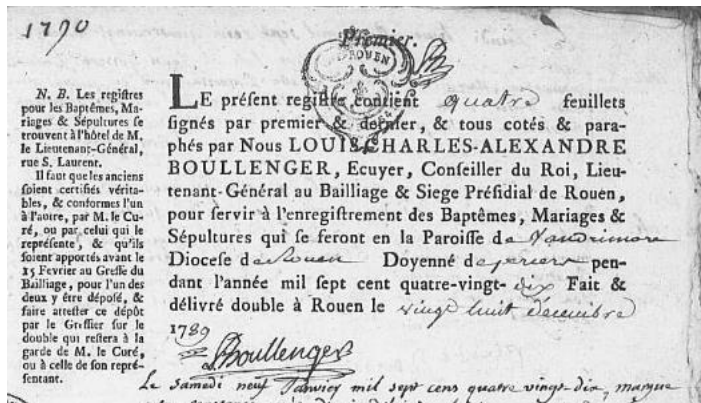 1790
Premier.
ROUEN
N. B. Les registres
pour les Baptêmes, Ma-
riages & Sépultures se
trouvent à l'hôtel de M.
le Lieutenant-Général,
rue S. Laurent.
Il faut que les anciens
soient certifiés vérita-
bles, & conformes l'un
à l'autre, par M. le Cu-
ré, ou par celui qui le
représente, & qu'ils
soient apportés avant le
15 Fevrier au Greffe du
Bailliage, pour l'un des
deux y être déposé, &
faire attester ce dépôt
par le Greffier sur le
double qui restera à la
garde de M. le Curé,
ou à celle de son repré-
sentant.
LE présent registre contient quatre feuillets
signés par premier & dernier, & tous cotés & para-
phés par Nous LOUIS-CHARLES-ALEXANDRE
BOULLENGER, Ecuyer, Conseiller du Roi, Lieu-
tenant-Général au Bailliage & Siege Présidial de Rouen,
pour servir à l'enregistrement des Baptêmes, Mariages &
Sépultures qui se feront en la Paroisse de Vandrimare
Diocese de Rouen Doyenné de periers pen-
dant l'année mil sept cent quatre-vingt-dix Fait &
délivré double à Rouen le vingt huit decembre
1789
Boullenger
Le samedi neuf Janvier mil sept cens quatre vingt-dix, marque